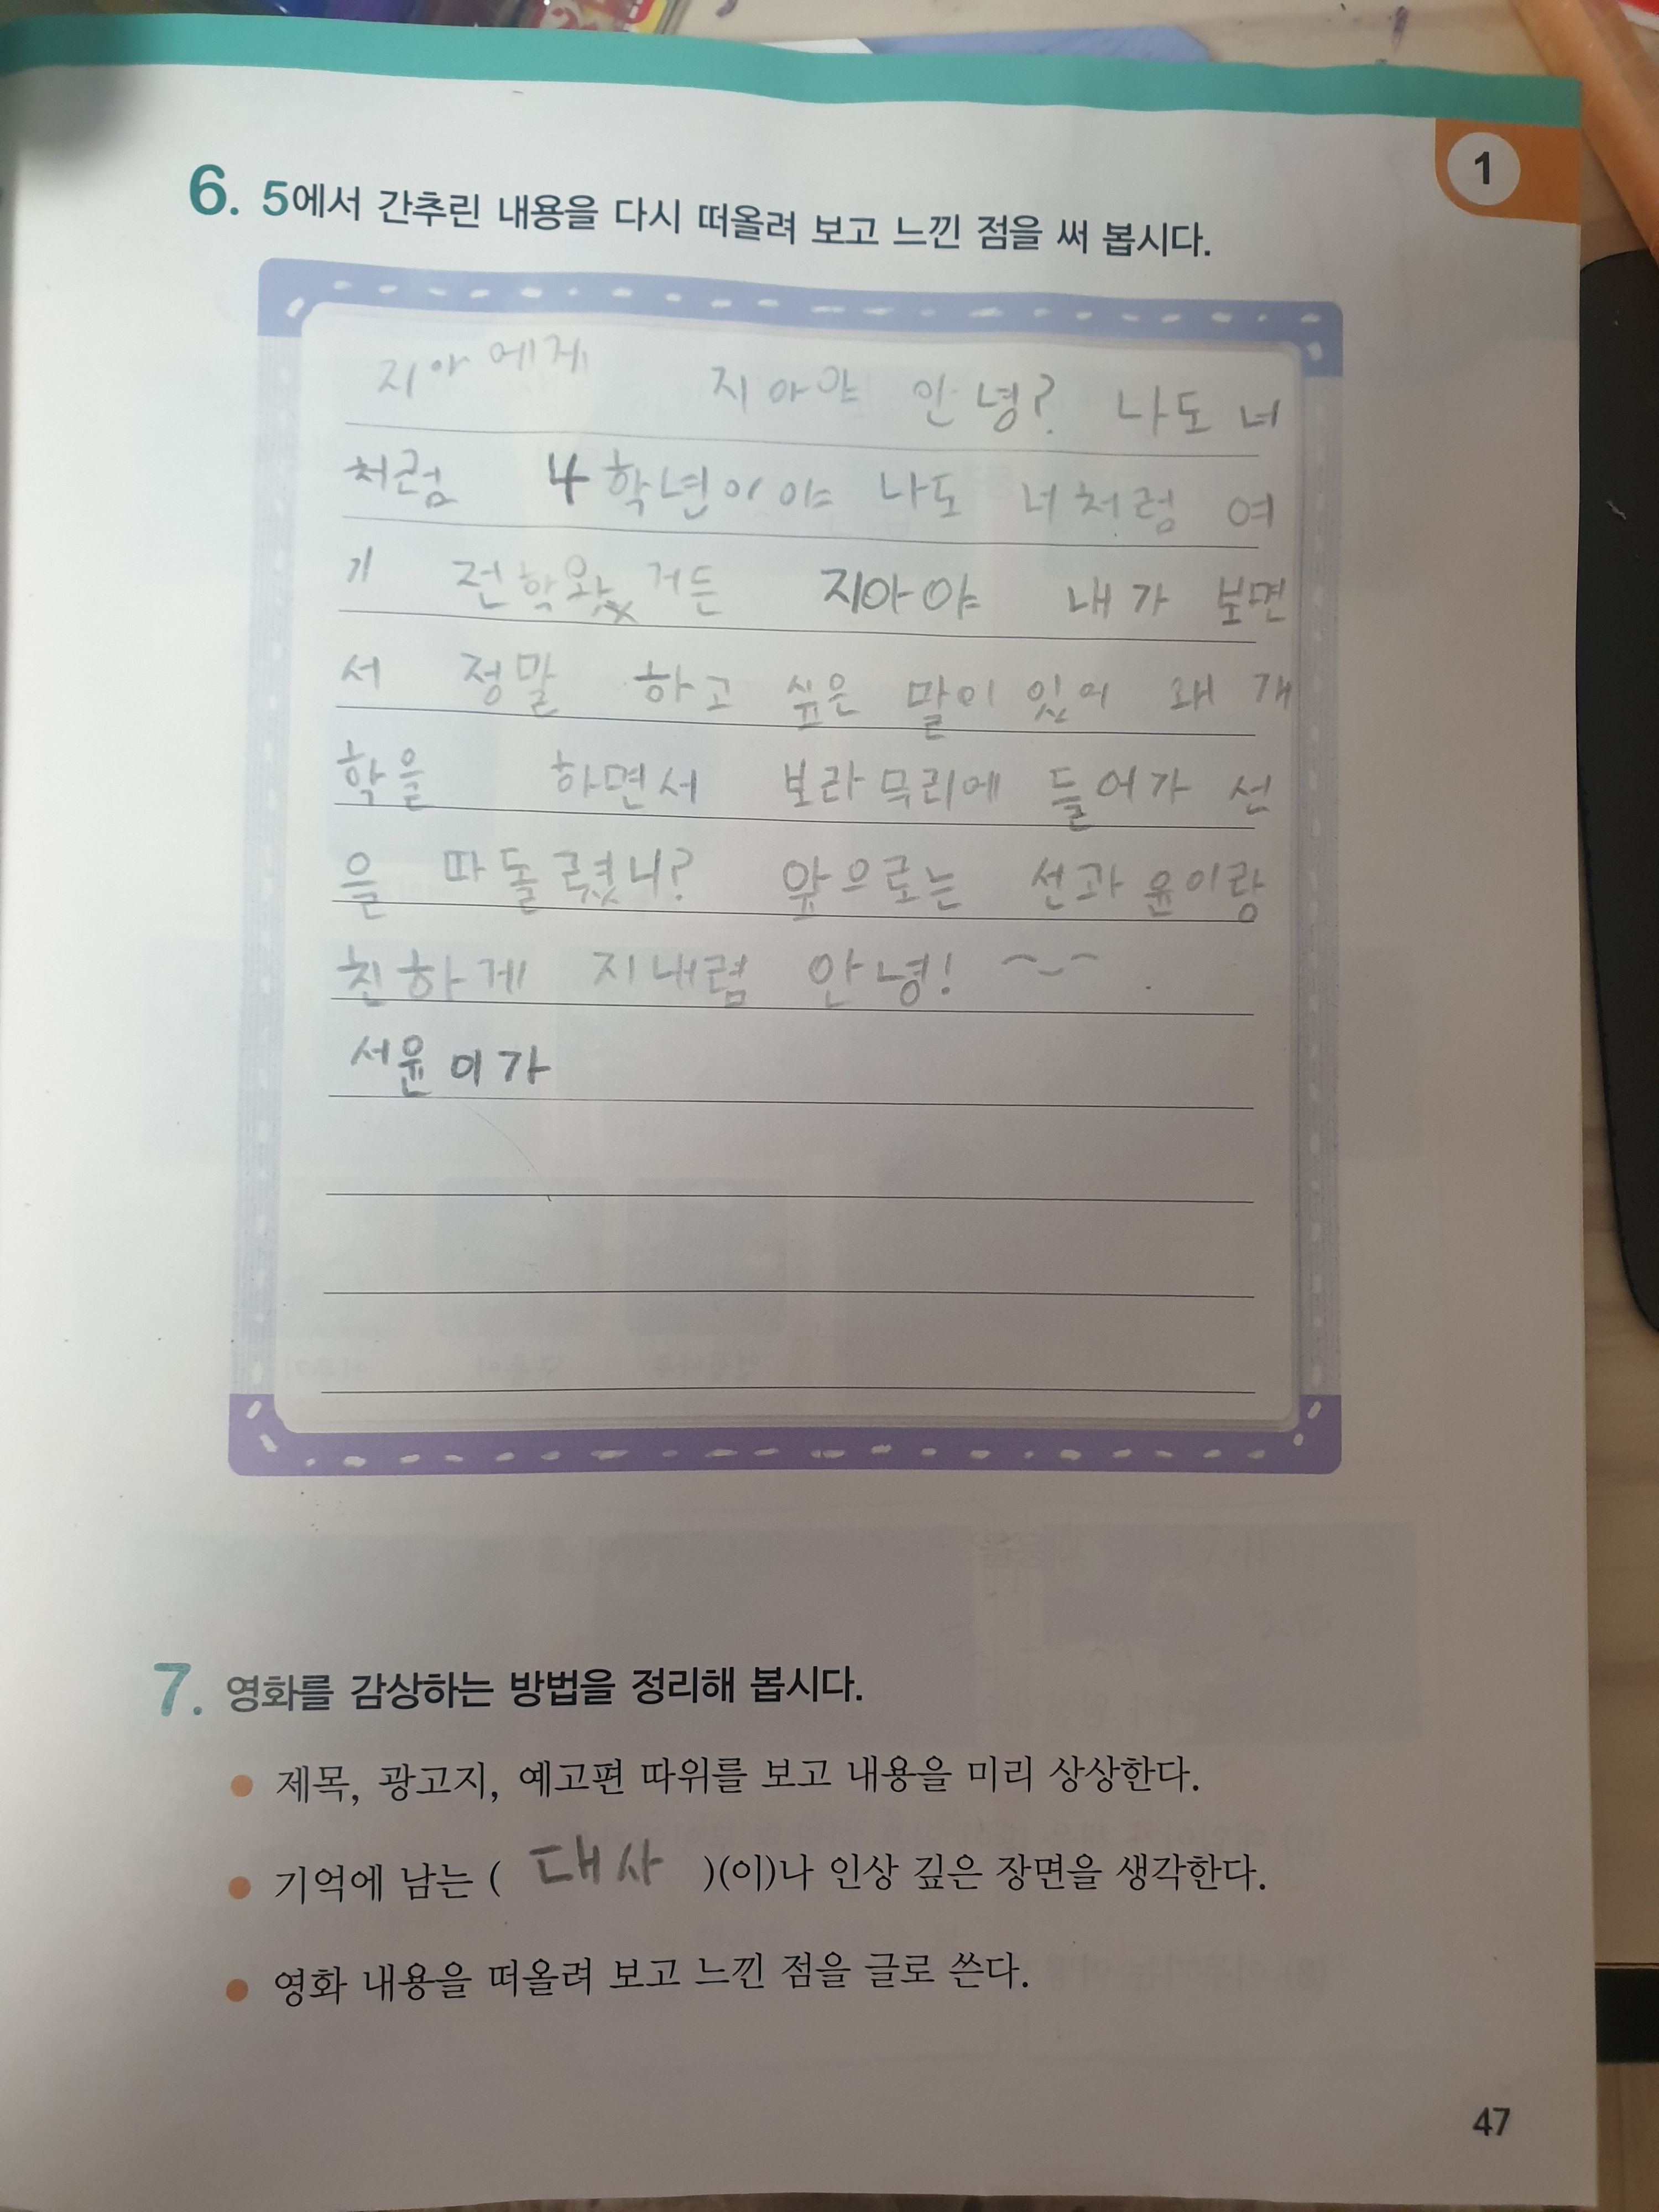 1
6. 5에서 간추린 내용을 다시 떠올려 보고 느낀 점을 써 봅시다.
지아에게 지아야 안녕? 나도 너
처럼 4학년이야 나도 너처럼 여
기 전학왔거든 지아야 내가 보면
서 정말 하고 싶은 말이 있어 왜 개
학을 하면서 보라무리에 들어가 선
을 따돌렸니? 앞으로는 선과 윤이랑
친하게 지내렴 안녕! ~~
서윤이가
7. 영화를 감상하는 방법을 정리해 봅시다.
제목, 광고지, 예고편 따위를 보고 내용을 미리 상상한다.
기억에 남는 ( 대사 )(이)나 인상 깊은 장면을 생각한다.
영화 내용을 떠올려 보고 느낀 점을 글로 쓴다.
47